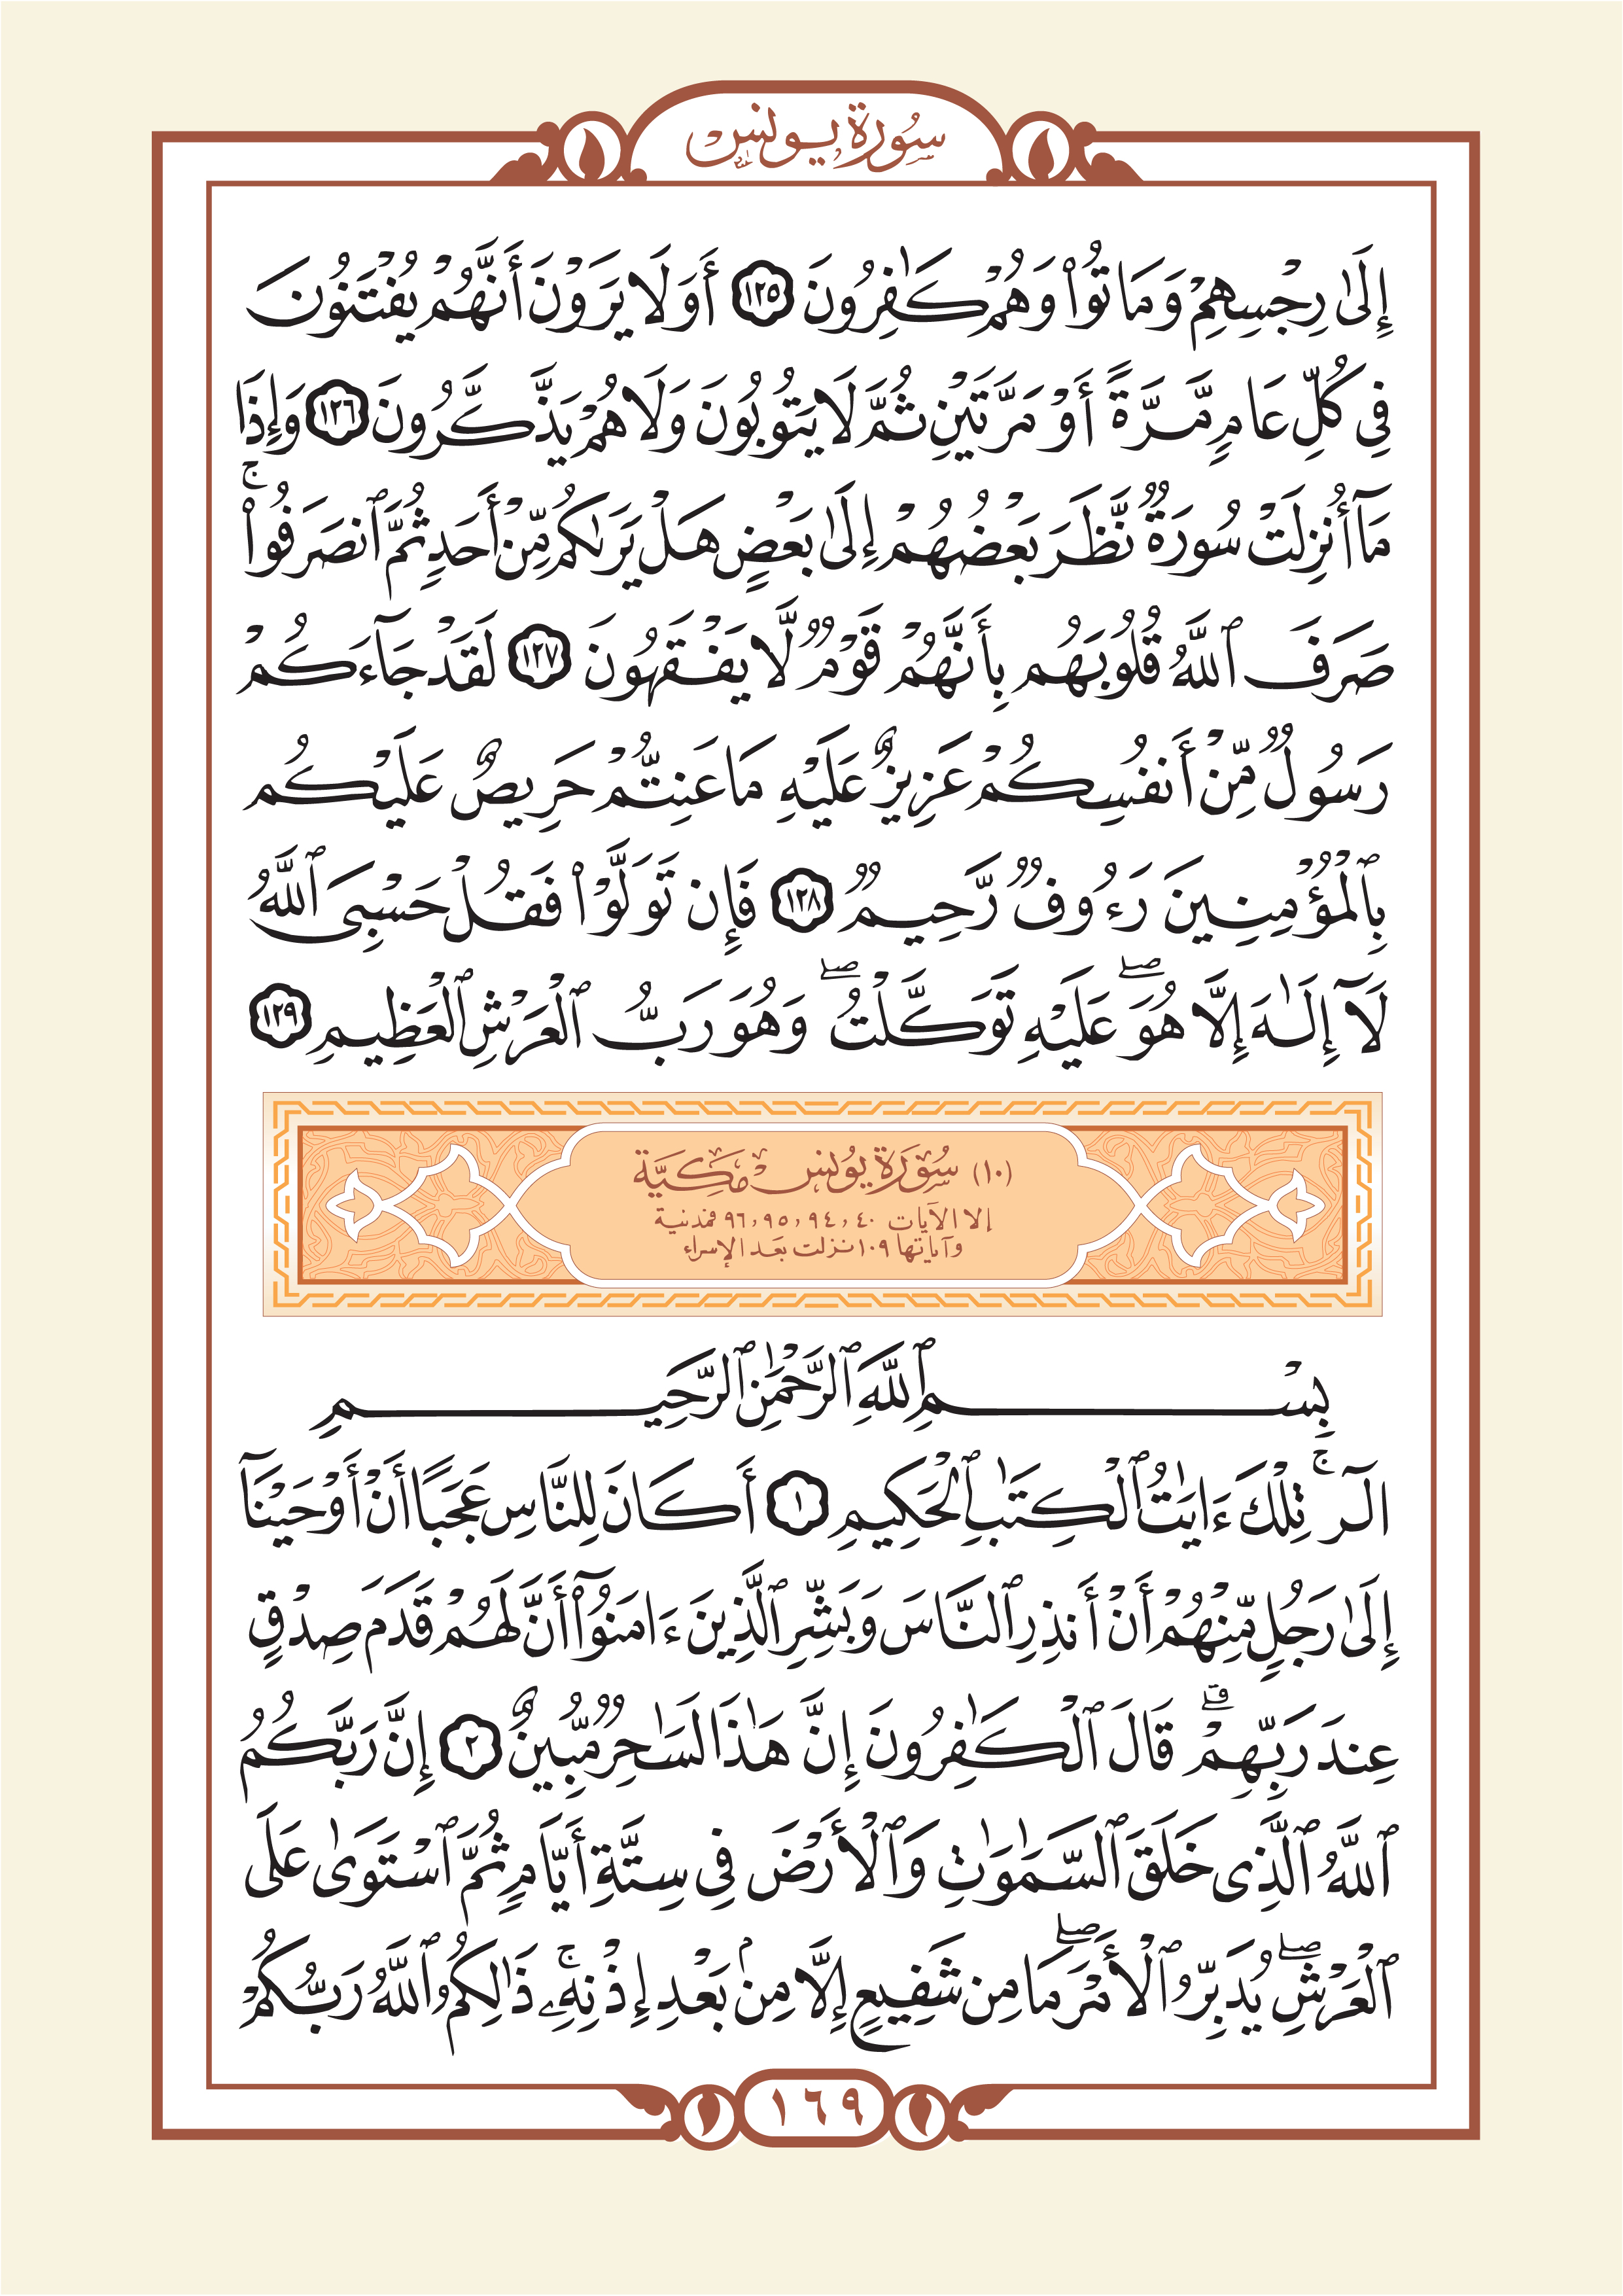 سُورَة يُونس
إِلَىٰ رِجْسِهِمْ وَمَاتُوا۟ وَهُمْ كَـٰفِرُونَ ١٢٥ أَوَلَا يَرَوْنَ أَنَّهُمْ يُفْتَنُونَ
فِى كُلِّ عَامٍ مَّرَّةً أَوْ مَرَّتَيْنِ ثُمَّ لَا يَتُوبُونَ وَلَا هُمْ يَذَّكَّرُونَ ١٢٦ وَإِذَا
مَآ أُنزِلَتْ سُورَةٌ نَّظَرَ بَعْضُهُمْ إِلَىٰ بَعْضٍ هَلْ يَرَىٰكُم مِّنْ أَحَدٍ ثُمَّ ٱنصَرَفُوا۟ ۚ
صَرَفَ ٱللَّهُ قُلُوبَهُم بِأَنَّهُمْ قَوْمٌ لَّا يَفْقَهُونَ ١٢٧ لَقَدْ جَآءَكُمْ
رَسُولٌ مِّنْ أَنفُسِكُمْ عَزِيزٌ عَلَيْهِ مَا عَنِتُّمْ حَرِيصٌ عَلَيْكُم
بِٱلْمُؤْمِنِينَ رَءُوفٌ رَّحِيمٌ ١٢٨ فَإِن تَوَلَّوْا۟ فَقُلْ حَسْبِىَ ٱللَّهُ
لَآ إِلَـٰهَ إِلَّا هُوَ ۖ عَلَيْهِ تَوَكَّلْتُ ۖ وَهُوَ رَبُّ ٱلْعَرْشِ ٱلْعَظِيمِ ١٢٩
(١٠) سُورَة يُونس مَكِيَّة
إلا الآيات ٤٠، ٩٤، ٩٥، ٩٦ فمدنية
وآياتها ١٠٩ نزلت بعد الإسراء
بِسْمِ ٱللَّهِ ٱلرَّحْمَـٰنِ ٱلرَّحِيمِ
الٓر ۚ تِلْكَ ءَايَـٰتُ ٱلْكِتَـٰبِ ٱلْحَكِيمِ ١ أَكَانَ لِلنَّاسِ عَجَبًا أَنْ أَوْحَيْنَآ
إِلَىٰ رَجُلٍ مِّنْهُمْ أَنْ أَنذِرِ ٱلنَّاسَ وَبَشِّرِ ٱلَّذِينَ ءَامَنُوٓا۟ أَنَّ لَهُمْ قَدَمَ صِدْقٍ
عِندَ رَبِّهِمْ ۗ قَالَ ٱلْكَـٰفِرُونَ إِنَّ هَـٰذَا لَسَـٰحِرٌ مُّبِينٌ ٢ إِنَّ رَبَّكُمُ
ٱللَّهُ ٱلَّذِى خَلَقَ ٱلسَّمَـٰوَٰتِ وَٱلْأَرْضَ فِى سِتَّةِ أَيَّامٍ ثُمَّ ٱسْتَوَىٰ عَلَى
ٱلْعَرْشِ ۖ يُدَبِّرُ ٱلْأَمْرَ ۖ مَا مِن شَفِيعٍ إِلَّا مِنۢ بَعْدِ إِذْنِهِۦ ۚ ذَٰلِكُمُ ٱللَّهُ رَبُّكُمْ
١٦٩